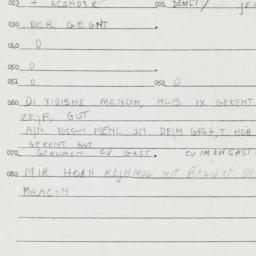 023 + 024 DEMLT/
030 DER GEGNT
040 0
050 0
051 0 052 0
060 DI YIDISHE MENCN, HOB IX GEKENT
ZEJR, GUT
AJN IDISN MENC IN DEJM HOB
GEKENT GUT
070 GEKUMEN CU GAST. CU IM IN GAST
080 MIR HOBN KEJNMOL NIT BAZUXT
MENCN